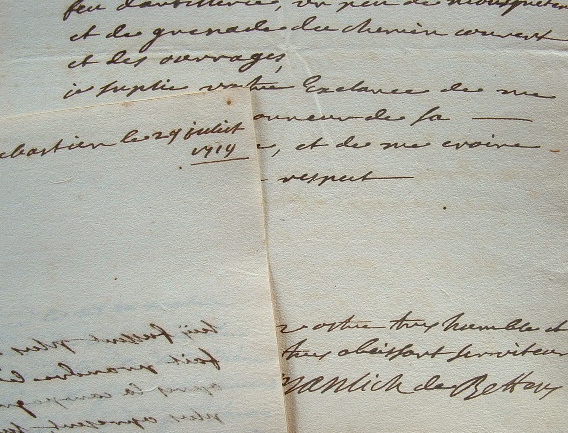 feu d'artillerie, un peu de
et de grenade du chemin couvert
et des ouvrages,
je suplie vostre Exelance de me
onneur de sa
e, et de me croire
respect
ebastien le 29 juillit
1719
vostre tres humble et
tres obeissant serviteur
de
luy fussent plus
fait
apres la
plus